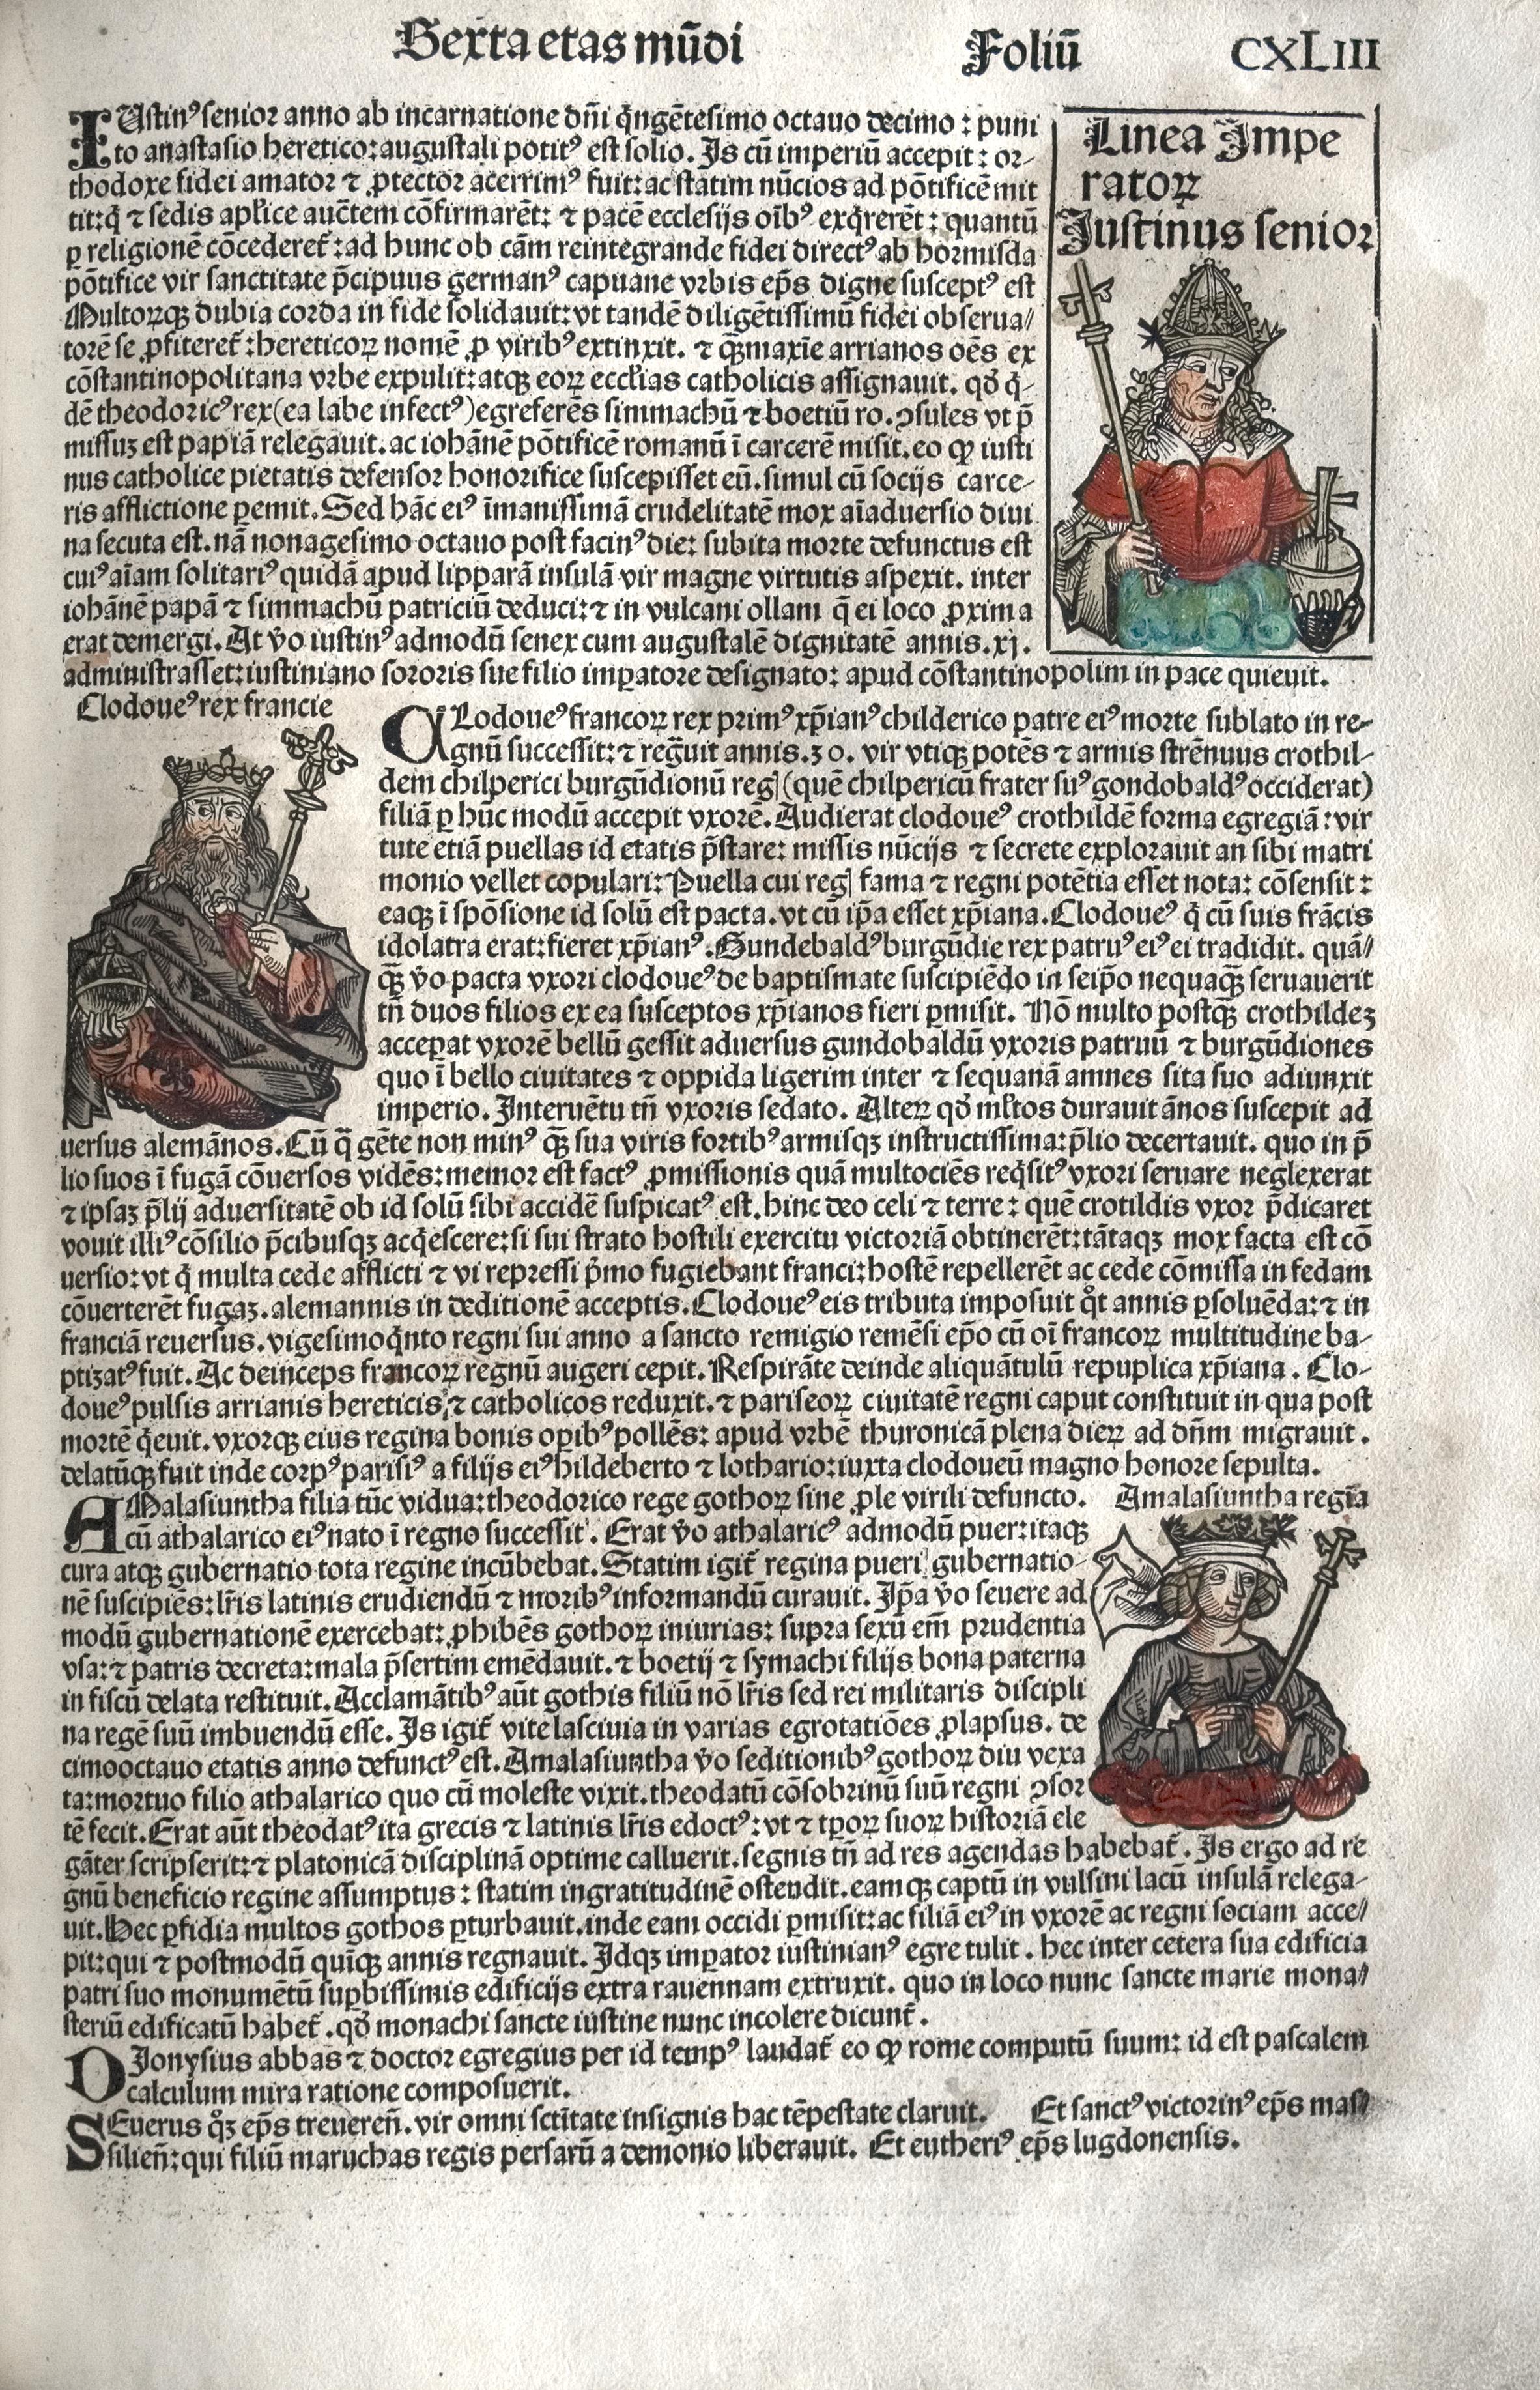 Sexta etas mūdi Foliū CXLIII
Iustinꝰ senior anno ab incarnatione dñi q̇ngētesimo octauo decimo : puni
to anastasio heretico: augustali potitꝰ est solio. Is cū imperiū accepit : or-
thodoxe fidei amator ⁊ ꝓtector acerrimꝰ fuit: ac statim nūcios ad pōtificē mit
tit: q̇ ⁊ sedis apl̓ice auctem cōfirmarēt: ⁊ pacē ecclesijs oībꝰ exq̇rerēt : quantū
ꝑ religionē cōcederet᷑ : ad hunc ob cām reintegrande fidei directꝰ ab hormisda
pōtifice vir sanctitate p̄cipuus germanꝰ capuane vrbis ep̄s digne susceptꝰ est
Multorꝝqꝫ dubia corda in fide solidauit: vt tandē diligētissimū fidei obserua/
torē se ꝓfiteret᷑ : hereticoꝝ nomē ꝓ viribꝰ extinxit. ⁊ qꝫ̄ maxīe arrianos oēs ex
cōstantinopolitana vrbe expulit: atqꝫ eoꝝ eccl̓ias catholicis assignauit. qd̄ q̇-
dē theodoricꝰ rex (ea labe infectꝰ) egreferēs simmachū ⁊ boetiū ro. ꝯsules vt p̄
missuꝫ est papiā relegauit. ac iohānē pōtificē romanū ī carcerē misit. eo ꝙ iusti
nus catholice pietatis defensor honorifice suscepisset eū. simul cū socijs carce-
ris afflictione ꝑemit. Sed hāc eiꝰ īmanissimā crudelitatē mox aīaduersio diui
na secuta est. nā nonagesimo octauo post facinꝰ die: subita morte defunctus est
cuiꝰ aīam solitariꝰ quidā apud lipparā insulā vir magne virtutis aspexit. inter
iohānē papā ⁊ simmachū patriciū deduci: ⁊ in vulcani ollam q̄ ei loco ꝓxima
erat demergi. At v̄o iustinꝰ admodū senex cum augustalē dignitatē annis. xj.
administrasset: iustiniano sororis sue filio imꝑatore designato: apud cōstantinopolim in pace quieuit.
Linea Impe
ratoꝝ
Justinus senior
Clodoueꝰ rex francie
Clodoueꝰ francoꝝ rex primꝰ xp̄ianꝰ childerico patre eiꝰ morte sublato in re-
gnū successit: ⁊ reg̅uit annis. 30. vir vtiqꝫ potēs ⁊ armis strēnuus crothil-
dem chilperici burgūdionū regꝭ (quē chilpericū frater suꝰ gondobaldꝰ occiderat)
filiā ꝑ hūc modū accepit vxorē. Audierat clodoueꝰ crothildē forma egregiā: vir
tute etiā puellas id etatis p̄stare: missis nūcijs ⁊ secrete explorauit an sibi matri
monio vellet copulari: Puella cui regꝭ fama ⁊ regni potētia esset nota: cōsensit :
eaqꝫ ī spōsione id solū est pacta. vt cū ip̄a esset xp̄iana. Clodoueꝰ q̇ cū suis frācis
idolatra erat: fieret xp̄ianꝰ. Gundebaldꝰ burgūdie rex patruꝰ eiꝰ ei tradidit. quā/
qꝫ̄ v̄o pacta vxori clodoueꝰ de baptismate suscipiēdo in seip̄o nequaqꝫ̄ seruauerit
tn̄ duos filios ex ea susceptos xp̄ianos fieri ꝑmisit. Nō multo postqꝫ̄ crothildeꝫ
acceꝑat vxorē bellū gessit aduersus gundobaldū vxoris patruū ⁊ burgūdiones
quo ī bello ciuitates ⁊ oppida ligerim inter ⁊ sequanā amnes sita suo adiunxit
imperio. Interuētu tn̄ vxoris sedato. Alteꝝ qd̄ ml̓tos durauit ānos suscepit ad
uersus alemānos. Cū q̄ gēte non minꝰ qꝫ̄ sua viris fortibꝰ armisqꝫ instructissima: p̄lio decertauit. quo in p̄
lio suos ī fugā cōuersos vidēs: memor est factꝰ ꝓmissionis quā multociēs req̇sitꝰ vxori seruare neglexerat
⁊ ipsaꝫ p̄lij aduersitatē ob id solū sibi accidē suspicatꝰ est. hinc deo celi ⁊ terre : quē crotildis vxor p̄dicaret
vouit illiꝰ cōsilio p̄cibusqꝫ acq̇escere: si sui strato hostili exercitu victoriā obtinerēt: tātaqꝫ mox facta est cō
uersio: vt q̇ multa cede afflicti ⁊ vi repressi p̄mo fugiebant franci: hostē repellerēt ac cede cōmissa in fedam
cōuerterēt fugaꝫ. alemannis in deditionē acceptis. Clodoueꝰ eis tributa imposuit qͦt annis ꝑsoluēda: ⁊ in
franciā reuersus. vigesimoq̇nto regni sui anno a sancto remigio remēsi ep̄o cū oī francoꝝ multitudine ba-
ptizatꝰ fuit. Ac deinceps francoꝝ regnū augeri cepit. Respirāte deinde aliquātulū repuplica xp̄iana. Clo-
doueꝰ pulsis arrianis hereticis, ⁊ catholicos reduxit. ⁊ pariseoꝝ ciuitatē regni caput constituit in qua post
mortē q̇euit. vxorqꝫ eius regina bonis oꝑibꝰ pollēs: apud vrbē thuronicā plena dieꝝ ad dn̄m migrauit.
delatūqꝫ fuit inde corpꝰ parisiꝰ a filijs eiꝰ hildeberto ⁊ lothario: iuxta clodoueū magno honore sepulta.
Amalasiuntha filia tūc vidua: theodorico rege gothoꝝ sine ꝓle virili defuncto. Amalasiuntha regīa
cū athalarico eiꝰ nato ī regno successit. Erat v̄o athalaricꝰ admodū puer: itaqꝫ
cura atqꝫ gubernatio tota regine incūbebat. Statim igit᷑ regina pueri gubernatio-
nē suscipiēs: lr̄is latinis erudiendū ⁊ moribꝰ informandū curauit. Ip̄a v̄o seuere ad
modū gubernationē exercebat: ꝓhibēs gothoꝝ iniurias: supra sexū em̄ prudentia
vsa: ⁊ patris decreta: mala p̄sertim emēdauit. ⁊ boetij ⁊ symachi filijs bona paterna
in fiscū delata restituit. Acclamātibꝰ aūt gothis filiū nō lr̄is sed rei militaris discipli
na regē suū imbuendū esse. Is igit᷑ vite lasciuia in varias egrotatiōes ꝓlapsus. de
cimooctauo etatis anno defunctꝰ est. Amalasiuntha v̄o seditionibꝰ gothoꝝ diu vexa
ta: mortuo filio athalarico quo cū moleste vixit. theodatū cōsobrinū suū regni ꝯsor
tē fecit. Erat aūt theodatꝰ ita grecis ⁊ latinis lr̄is edoctꝰ: vt ⁊ tꝑoꝝ suoꝝ historiā ele
gāter scripserit: ⁊ platonicā disciplinā optime calluerit. segnis tn̄ ad res agendas habebat᷑. Is ergo ad re
gnū beneficio regine assumptus : statim ingratitudinē ostendit. eamqꝫ captū in vulsini lacū insulā relega-
uit. Hec ꝑfidia multos gothos ꝑturbauit. inde eam occidi ꝑmisit: ac filiā eiꝰ in vxorē ac regni sociam acce/
pit: qui ⁊ postmodū quīqꝫ annis regnauit. Idqꝫ imꝑator iustinianꝰ egre tulit. hec inter cetera sua edificia
patri suo monumētū suꝑbissimis edificijs extra rauennam extruxit. quo in loco nunc sancte marie mona/
steriū edificatū habet᷑. qd̄ monachi sancte iustine nunc incolere dicunt᷑.
Dionysius abbas ⁊ doctor egregius per id tempꝰ laudat᷑ eo ꝙ rome computū suum: id est pascalem
calculum mira ratione composuerit.
Seuerus qͦꝫ ep̄s treueren̄. vir omni sctītate insignis hac tēpestate claruit. Et sanctꝰ victorinꝰ ep̄s mas/
silien̄: qui filiū maruchas regis persarū a demonio liberauit. Et eutheriꝰ ep̄s lugdonensis.